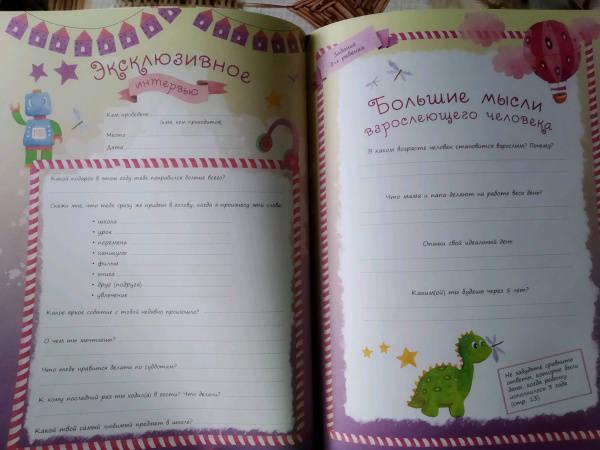 Эксклюзивное
интервью
Кем проведено
(имя, кем приходится)
Место
Дата
Какой подарок в этом году тебе понравился больше всего?
Скажи мне, что тебе сразу же придёт в голову, когда я произнесу эти слова:
• школа
• урок
• перемена
• каникулы
• фильм
• книга
• друг (подруга)
• увлечение
Какое яркое событие с тобой недавно произошло?
О чём ты мечтаешь?
Что тебе нравится делать по субботам?
К кому последний раз ты ходил(а) в гости? Что делали?
Какой твой самый любимый предмет в школе?
Задание
для ребёнка
Большие мысли
взрослеющего человека
В каком возрасте человек становится взрослым? Почему?
Что мама и папа делают на работе весь день?
Опиши свой идеальный день
Каким(ой) ты будешь через 5 лет?
Не забудьте сравнить
ответы, которые были
даны, когда ребёнку
исполнилось 3 года
(стр. 23).